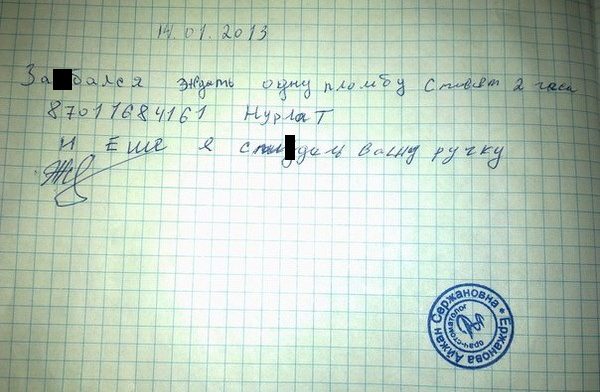 14.01.2013
За█бался ждать одну пломбу ставят 2 часа
87011684161 Нурлат
И Еше я сп█дил вашу ручку
Ержанова Айжан Сержановна
врач-стоматолог